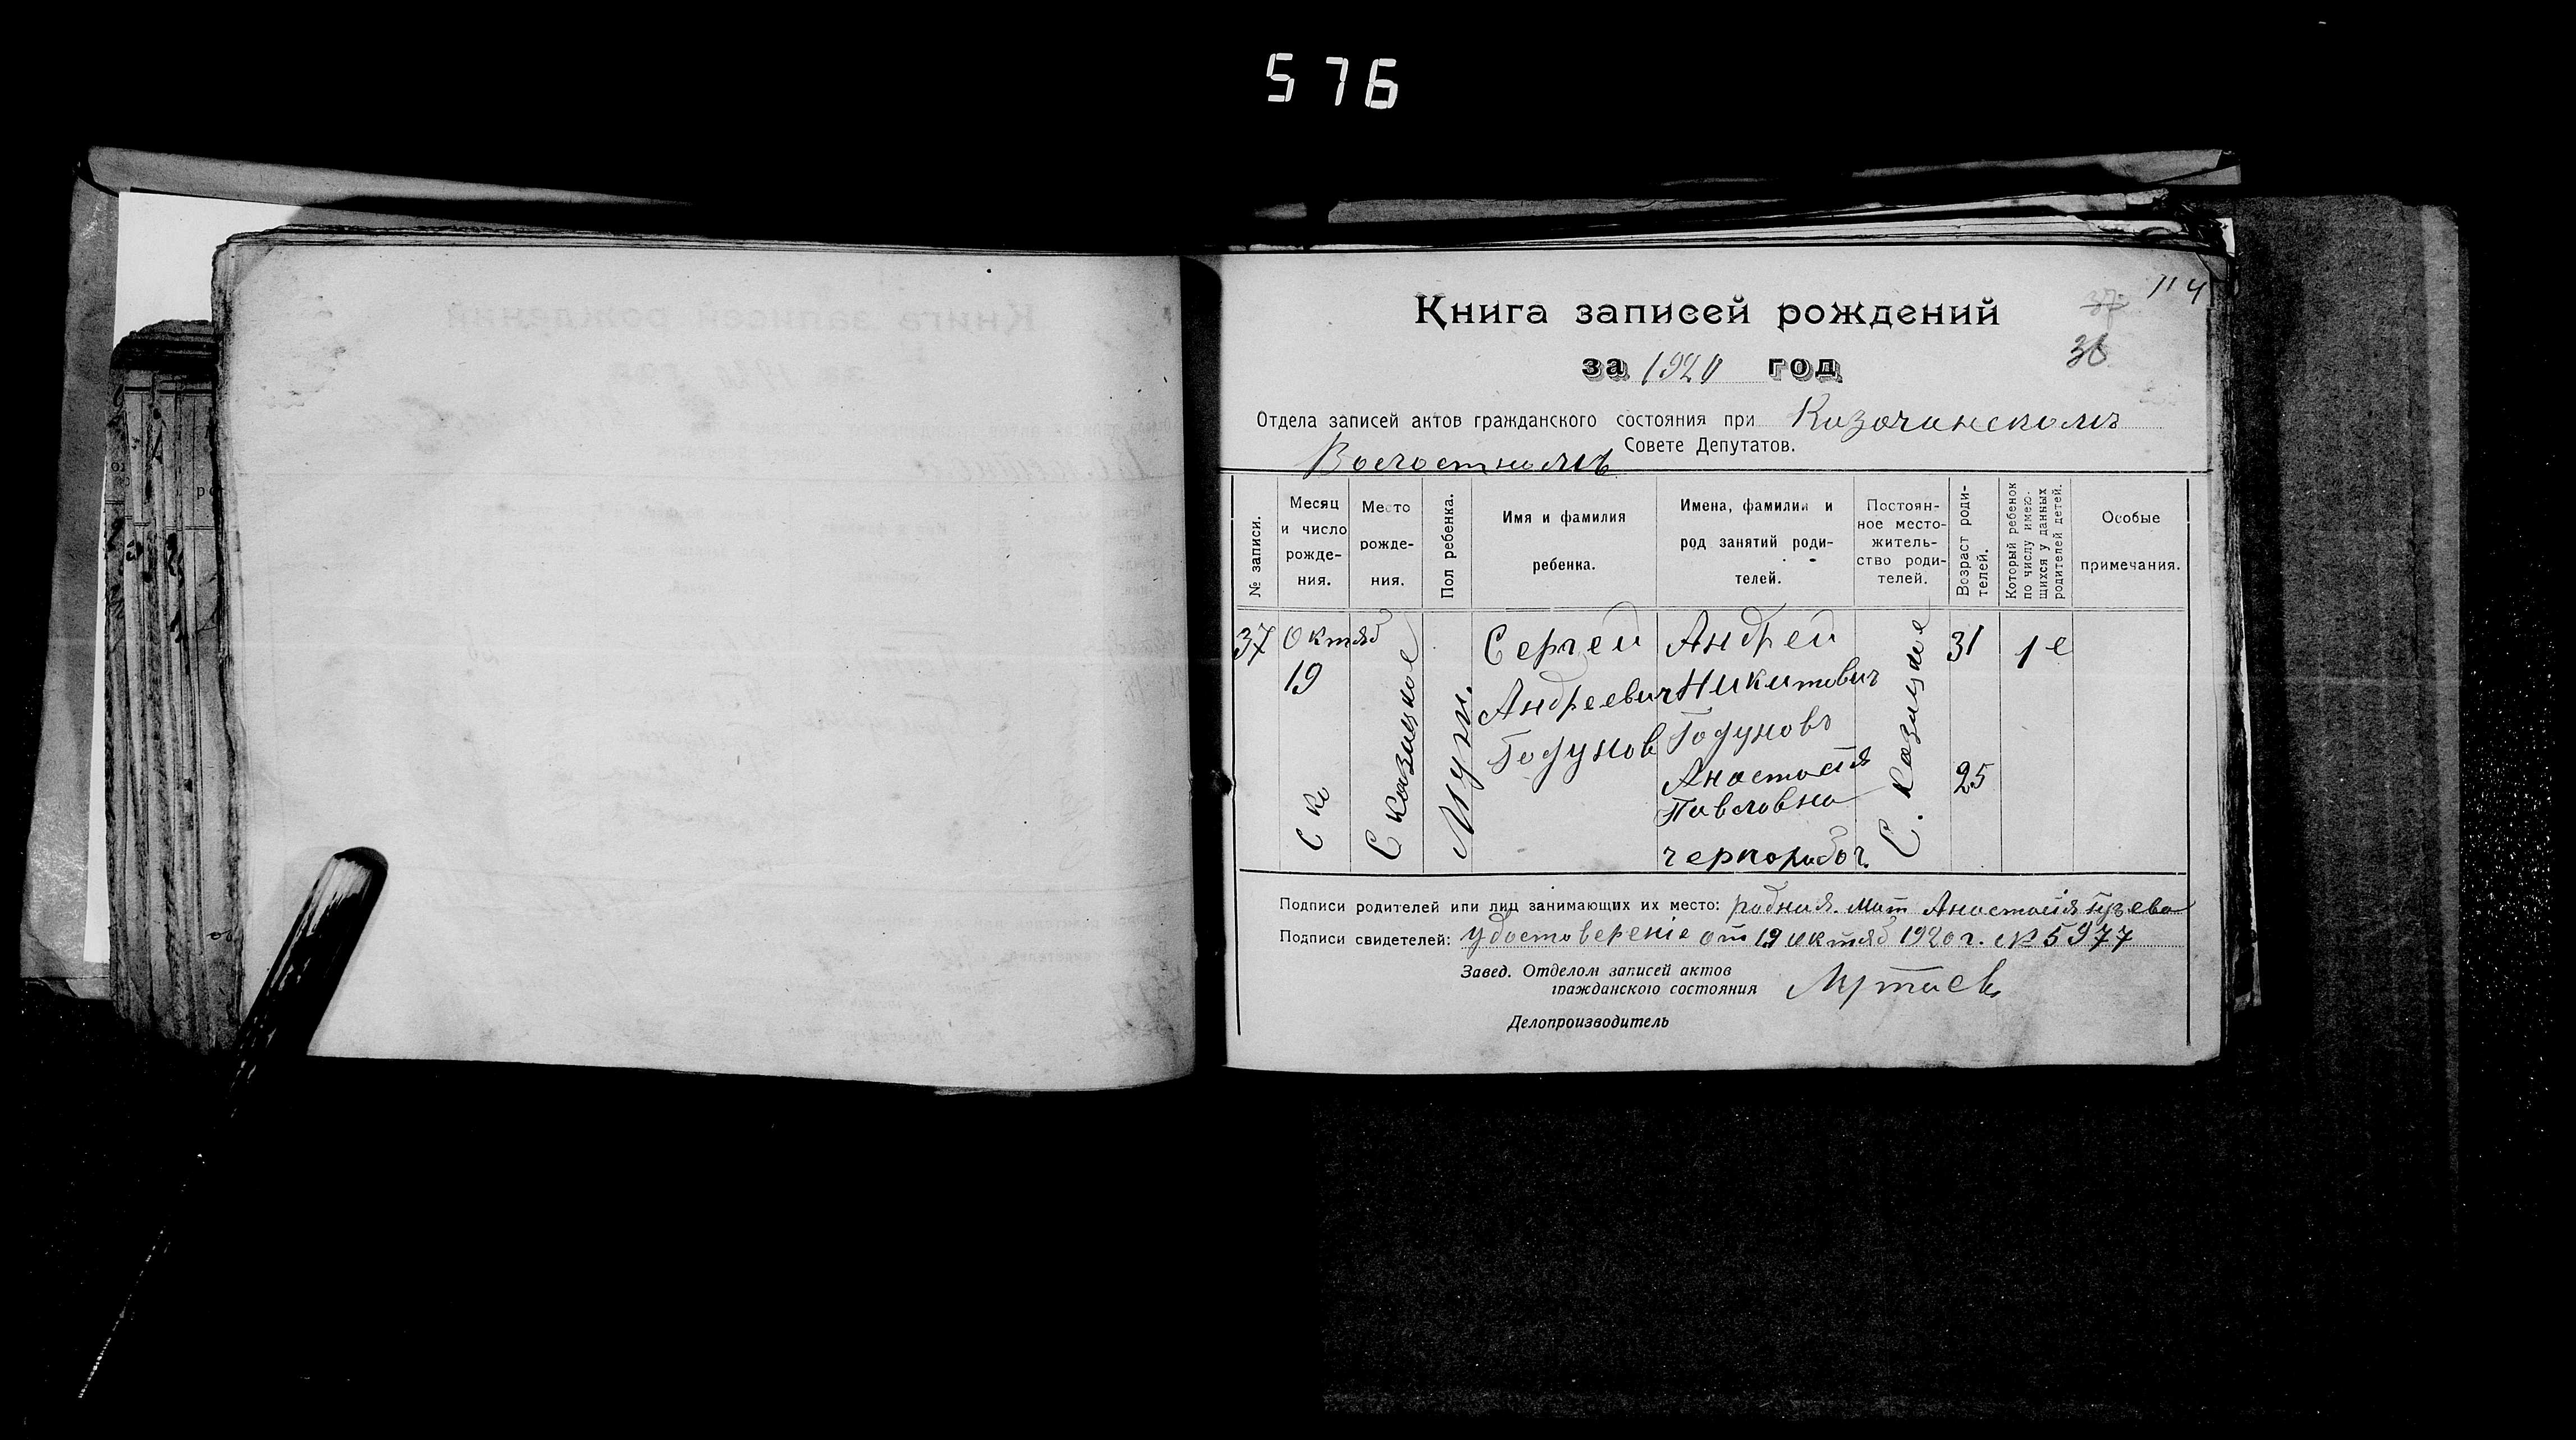 576
114
37
36
Книга записей рождений
за 1920 год
Отдела записей актов гражданского состояния при Казачинскомъ
Волостномъ Совете Депутатов.
№ записи.
Месяц и число рожде-ния.
Место рожде-ния.
Пол ребенка.
Имя и фамилия ребенка.
Имена, фамилии и род занятий роди-телей.
Постоян-ное место-житель-ство роди-телей.
Возраст роди-телей.
Который ребенок по числу имею-щихся у данных родителей детей.
Особые примечания.
37
Октяб
19
С Ка
С казицкое
Мужс.
Сергеи
Андреевич
Годунов
Андреи
Никитовичъ
Годуновъ
Анастасія
Павловна
чернорабоч.
С. Казицкое
31
25
1 е
Подписи родителей или лиц занимающих их место: родная. мат Анастасія
Подписи свидетелей: удостоверение от 19 октяб 1920 г. № 5977
Завед. Отделом записей актов
гражданского состояния
Делопроизводитель